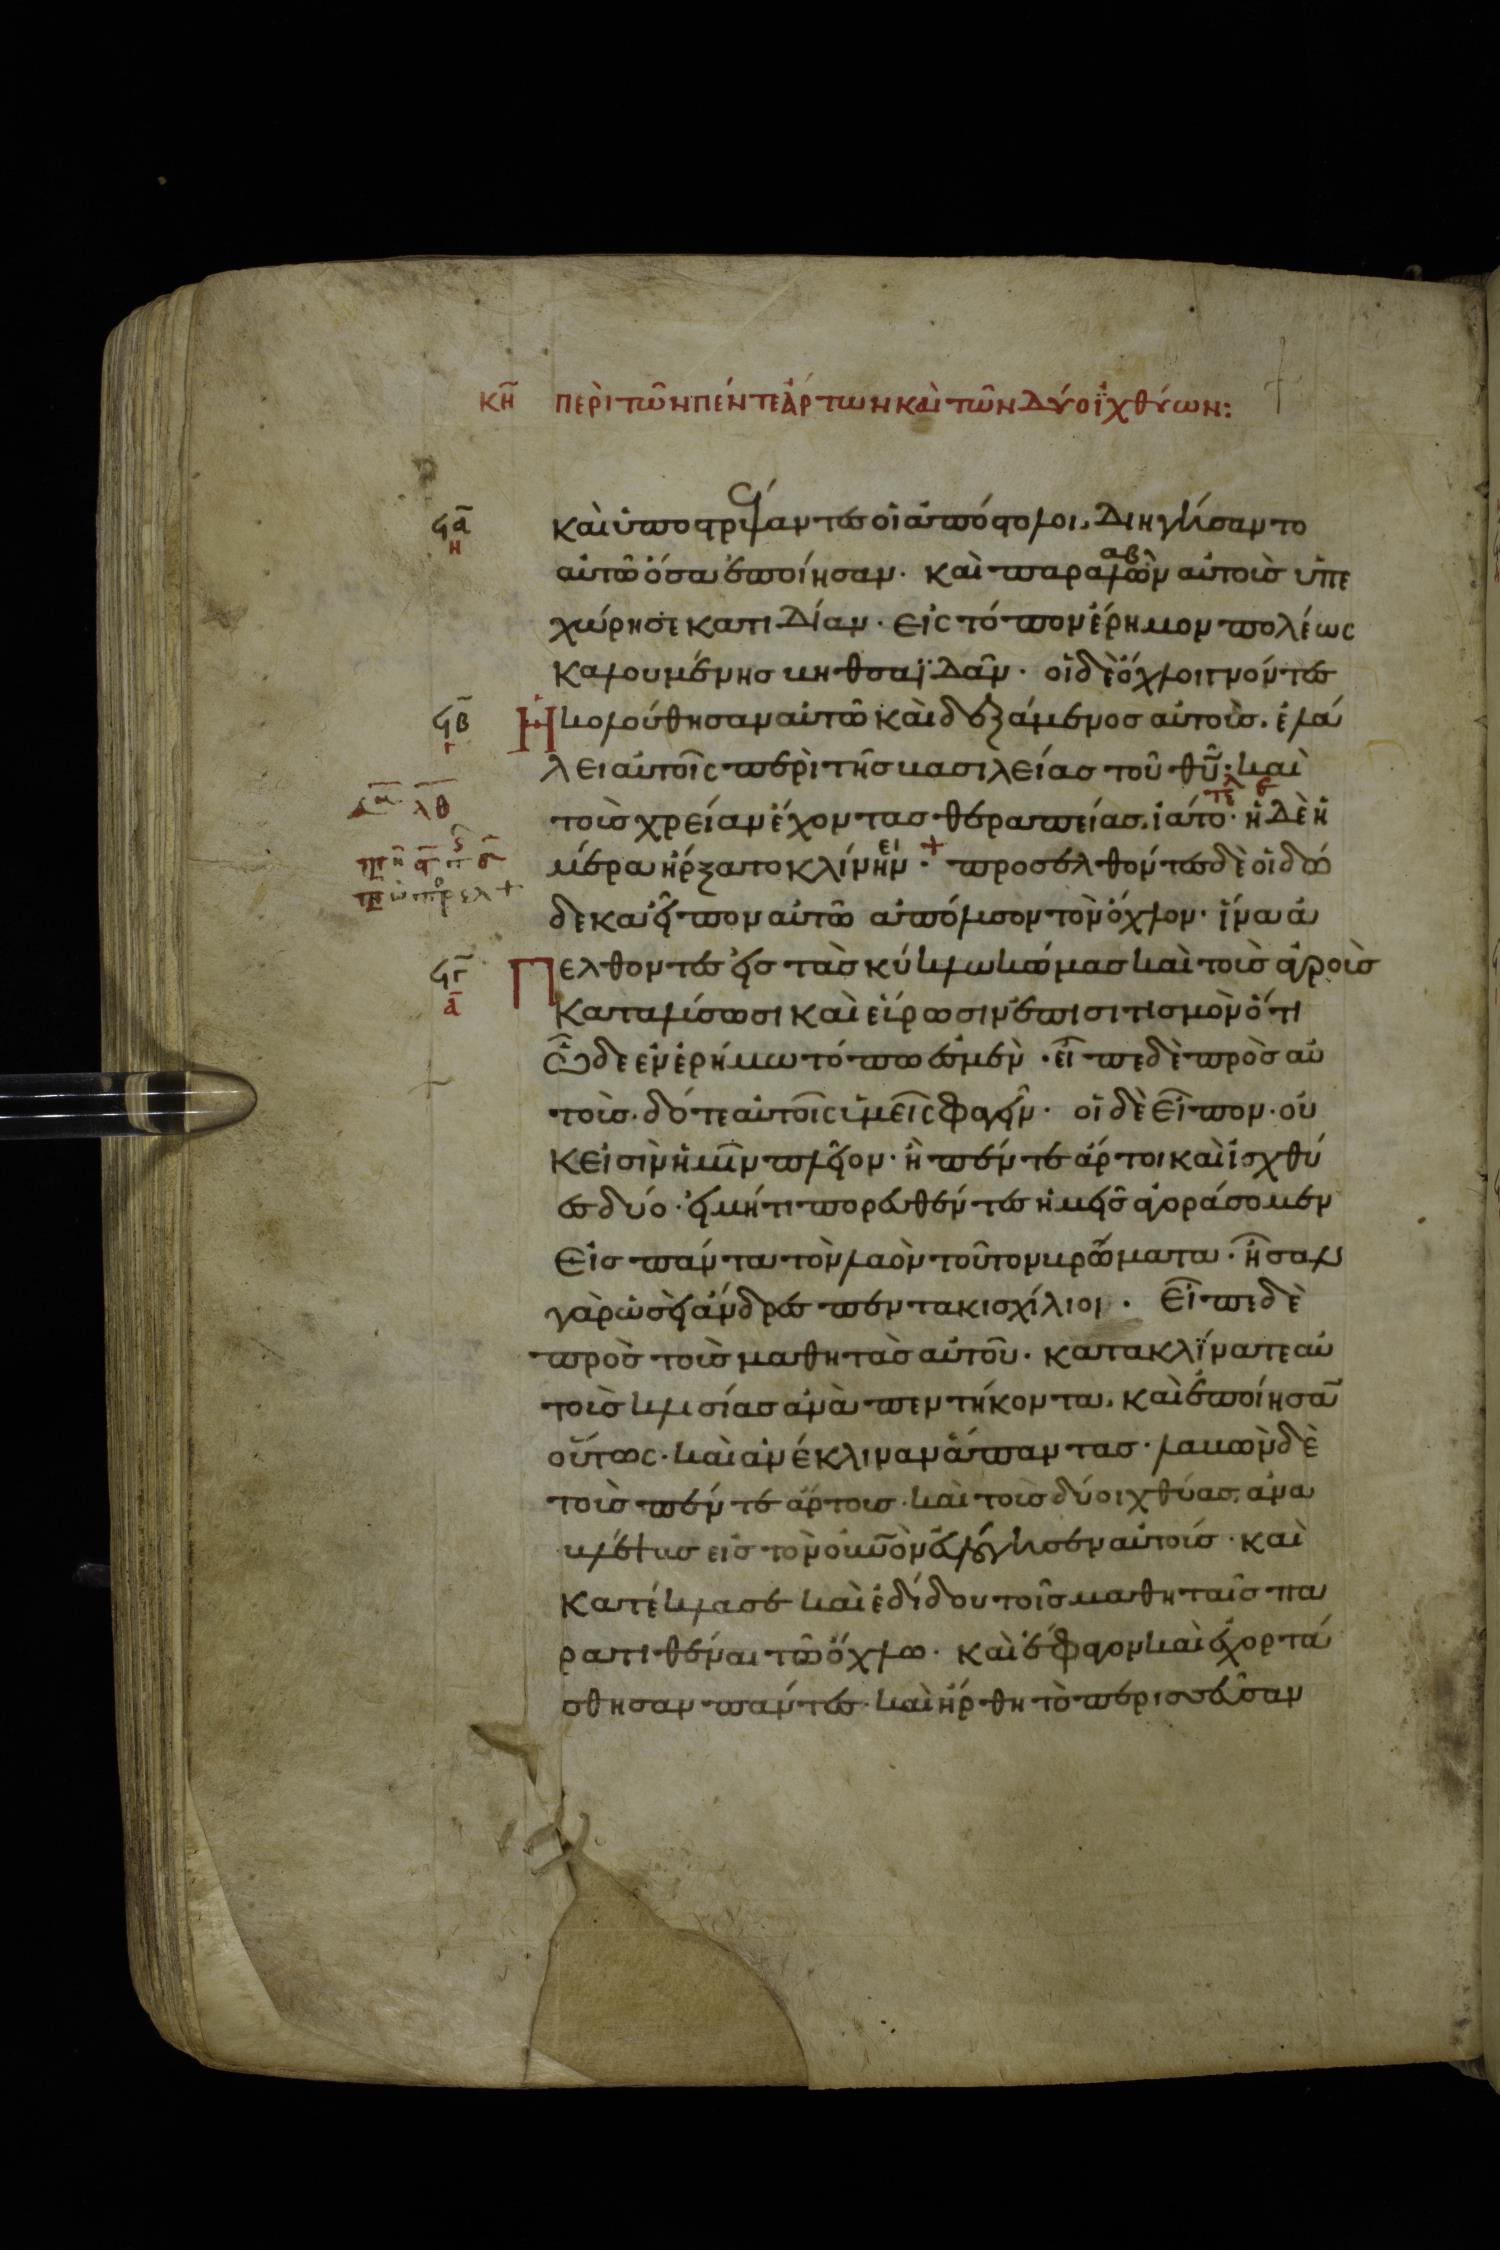 κη περὶ τῶν πέντε ἄρτων καὶ τῶν δύο ἰχθύων:
ϟα καὶ ὑποστρέψαντες οἱ ἀπόστολοι, διηγήσαντο
η
αὐτῶ ὅσα ἐποίησαν· καὶ παραλαβὼν αὐτοὺς ὑπε
χώρησε κατιδίαν· εἰς τόπον ἔρημον πόλεως
καλουμένης βηθσαϊδάν· οἱ δὲ ὄχλοι γνόντες
ϟβ Ἠκολούθησαν αὐτῶ καὶ δεξάμενος αὐτοὺς, ἐλά
γ
λει αὐτοῖς περὶ τῆς βασιλείας τοῦ θῦ· καὶ
τοὺς χρείαν ἔχοντας θεραπείας, ἰάτο· ἡ δὲ ἡ
μέρα ἤρξατο κλίνειν· + προσελθόντες δὲ οἱ δώ
δεκα εἶπον αὐτῶ ἀπόλυσον τὸν ὄχλον· ἵνα ἀ
ϟγ Πελθόντες εἰς τὰς κύκλω κώμας καὶ τοὺς ἀγροὺς
α
καταλύσωσι καὶ εὕρωσιν ἐπισιτισμὸν ὅτι
ὧδε ἐν ἐρήμω τόπω ἐσμὲν· εἶπε δὲ πρὸς αὐ
τοὺς· δότε αὐτοῖς ὑμεῖς φαγεῖν· οἱ δὲ εἶπον· οὐ
κ εἰσὶν ἡμῖν πλεῖον· ἢ πέντε ἄρτοι καὶ ἰχθύ
ες δύο· εἰ μήτι πορευθέντες ἡμεῖς ἀγοράσομεν
εἰς πάντα τὸν λαὸν τοῦτον βρώματα· ἦσαν
γὰρ ὡσεὶ ἄνδρες πεντακισχίλιοι· εἶπε δὲ
πρὸς τοὺς μαθητὰς αὐτοῦ· κατακλίνατε αὐ
τοὺς κλισίας ἀνὰ πεντήκοντα, καὶ ἐποίησαν
οὕτως· καὶ ἀνέκλιναν ἅπαντας· λαβὼν δὲ
τοὺς πέντε ἄρτους· καὶ τοὺς δύο ἰχθύας, ἀνα
βλέψας εἰς τὸν οὐνὸν εὐλόγησεν αὐτούς· καὶ
κατέκλασε καὶ ἐδίδου τοῖς μαθηταῖς πα
ρατιθέναι τῶ ὄχλω· καὶ ἔφαγον καὶ ἐχορτά
σθησαν πάντες· καὶ ἤρθη τὸ περισσεῦσαν